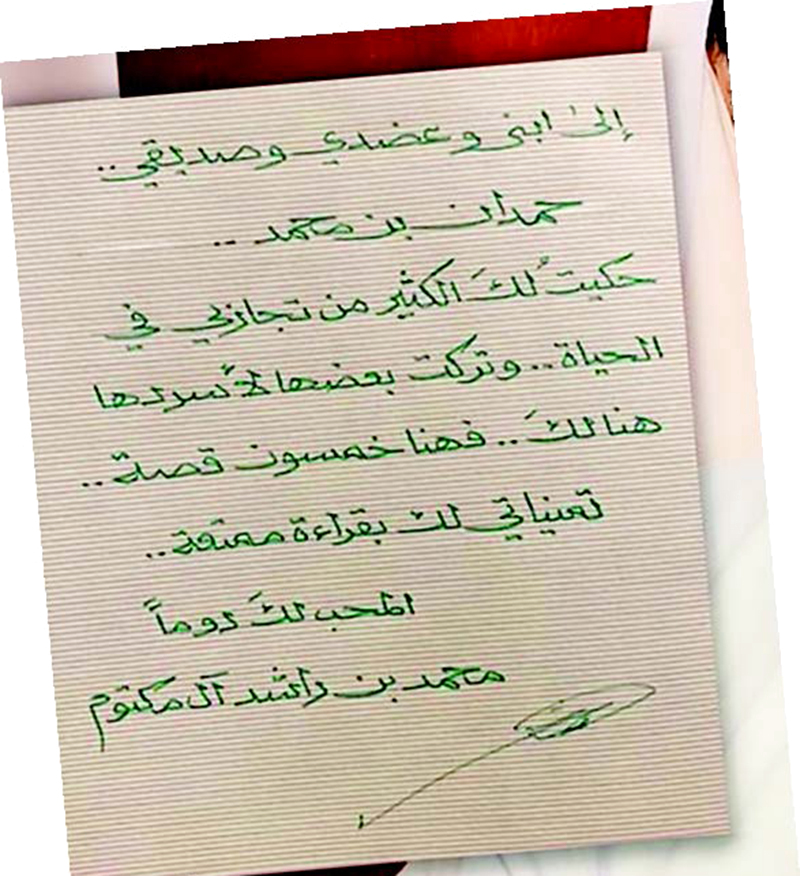 إلى ابني وعضدي وصديقي..
حمدان بن محمد ..
حكيتُ لكَ الكثير من تجاربي في
الحياة.. وتركت بعضها لأسردها
هنا لكَ.. فهنا خمسون قصة..
تمنياتي لك بقراءة ممتعة..
المحب لكَ دوماً
محمد بن راشد آل مكتوم